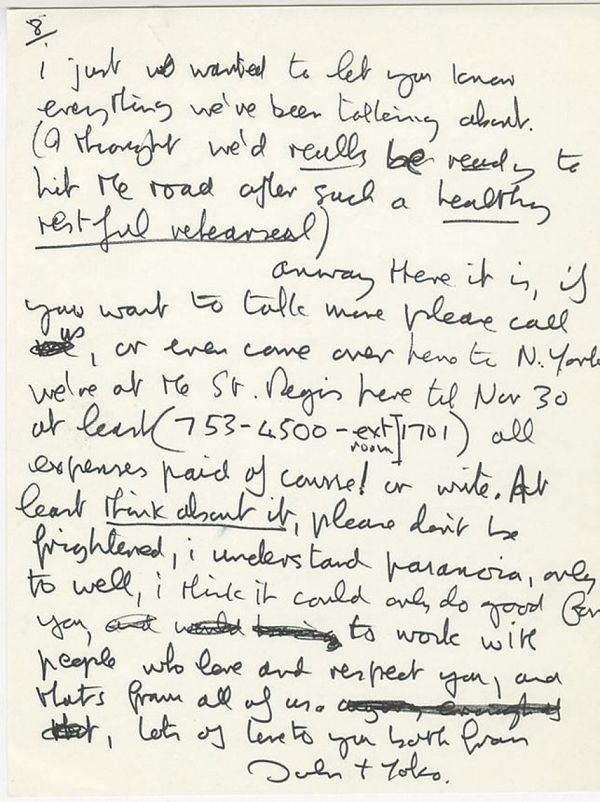 8
i just wanted to let you know
everything we've been talking about.
(a thought we'd really be ready to
hit the road after such a healthy
restful rehearsal)
anway Here it is, if
you want to talk more please call
us, or even come over here to N. York
we're at the St. Regis here til Nov 30
at least (753-4500-ext room 1701) all
expenses paid of course! or write. At
least think about it, please don't be
frightened, i understand paranoia, only
to well, i think it could only do good for
you, to work with
people who love and respect you, and
thats from all of us.
, lots of love to you both from
John + Yoko.